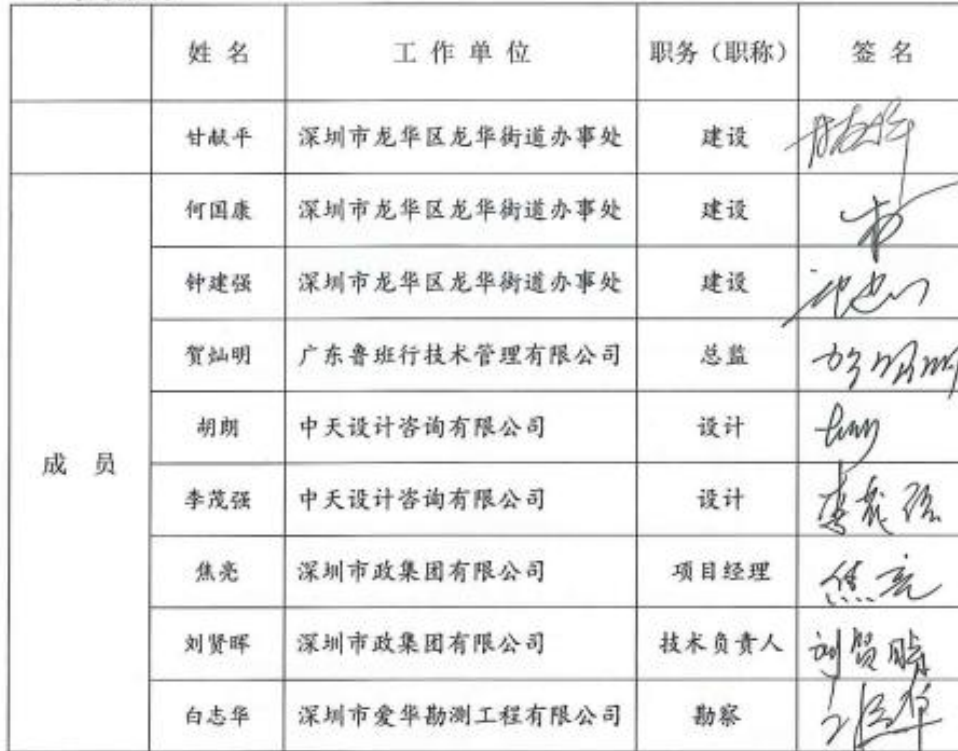 姓 名 工 作 单 位 职务（职称） 签 名
甘献平 深圳市龙华区龙华街道办事处 建设
何国康 深圳市龙华区龙华街道办事处 建设
钟建强 深圳市龙华区龙华街道办事处 建设
贺灿明 广东鲁班行技术管理有限公司 总监
胡朗 中天设计咨询有限公司 设计
成 员
李茂强 中天设计咨询有限公司 设计 李茂强
焦亮 深圳市政集团有限公司 项目经理 焦亮
刘贤晖 深圳市政集团有限公司 技术负责人 刘贤晖
白志华 深圳市爱华勘测工程有限公司 勘察